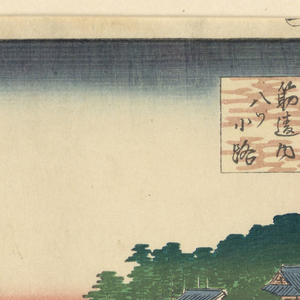 筋違内
八ツ小路